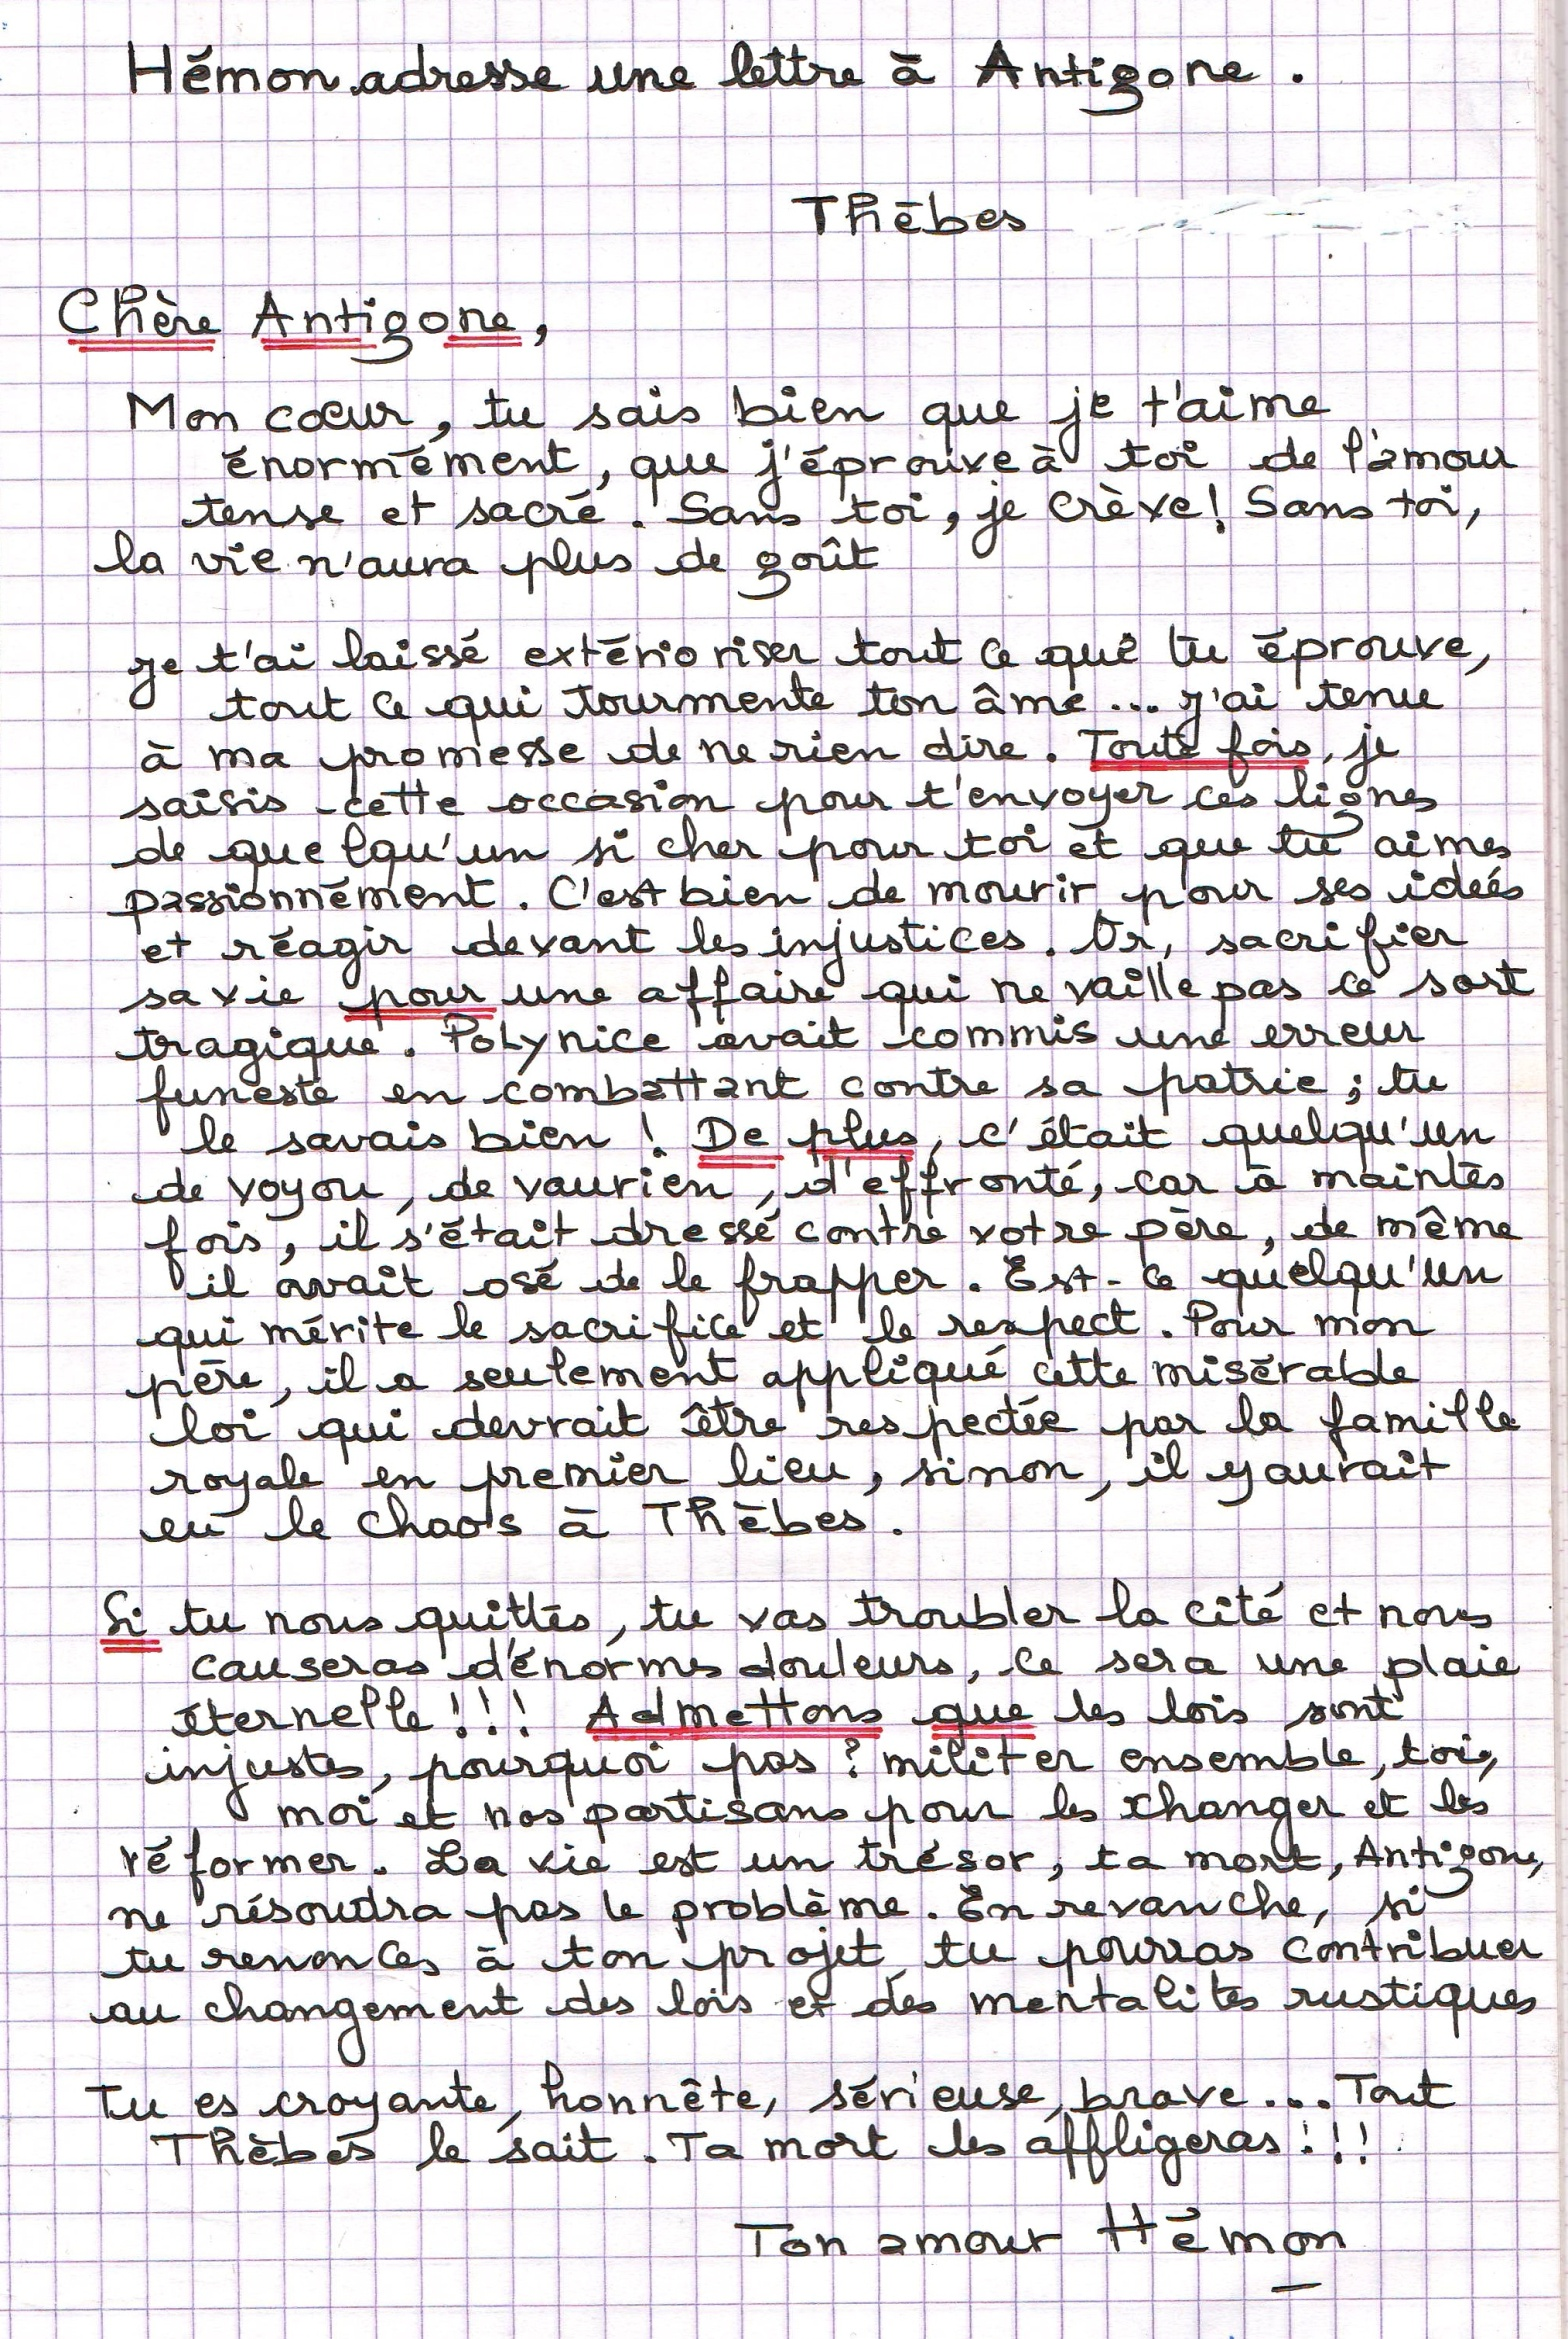 Hémon adresse une lettre à Antigone.
Thèbes
Chère Antigone,
Mon cœur, tu sais bien que je t'aime
énormément, que j'éprouve à toi de l'amour
tense et sacré. Sans toi, je crève! Sans toi,
la vie n'aura plus de goût
Je t'ai laissé extérioriser tout ce que tu éprouve,
tout ce qui tourmente ton âme... J'ai tenu
à ma promesse de ne rien dire. Toute fois, je
saisis cette occasion pour t'envoyer ces lignes
de quelqu'un si cher pour toi et que tu aimes
passionnément. C'est bien de mourir pour ses ideés
et réagir devant les injustices. Or, sacrifier
sa vie pour une affaire qui ne vaille pas ce sort
tragique. Polynice avait commis une erreur
funeste en combattant contre sa patrie ; tu
le savais bien ! De plus, c'était quelqu'un
de voyou, de vaurien, d'effronté, car à maintes
fois, il s'était dressé contre votre père, de même
il avait osé de le frapper. Est-ce quelqu'un
qui mérite le sacrifice et le respect. Pour mon
père, il a seulement appliqué cette misérable
loi qui devrait être respectée par la famille
royale en premier lieu, sinon, il y aurait
eu le chaos à Thèbes.
Si tu nous quittes, tu vas troubler la cité et nous
causeras d'énormes douleurs, ce sera une plaie
éternelle!!! Admettons que les lois sont
injustes, pourquoi pas ? militer ensemble, toi,
moi et nos partisans pour les changer et les
réformer. La vie est un trésor, ta mort, Antigone,
ne résoudra pas le problème. En revanche, si
tu renonces à ton projet, tu pourras contribuer
au changement des lois et des mentalités rustiques
Tu es croyante, honnête, sérieuse, brave... Tout
Thèbes le sait. Ta mort les affligeras!!!
Ton amour Hémon